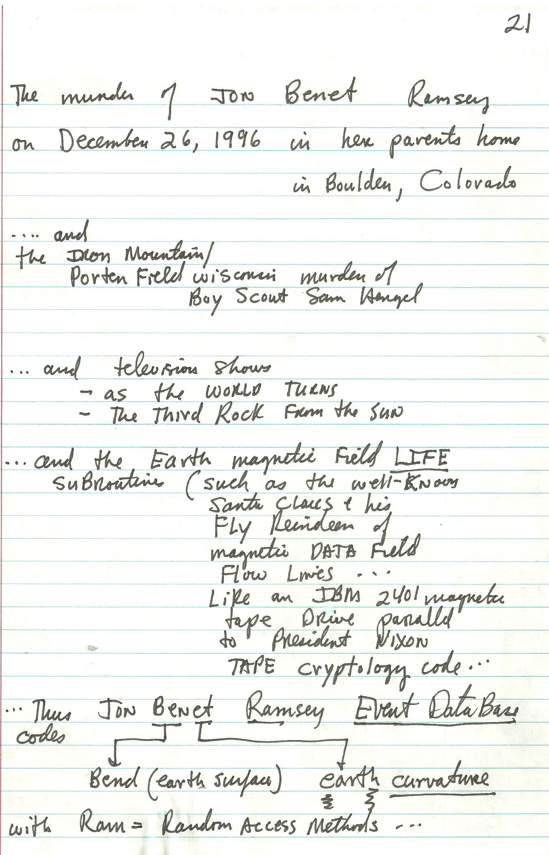 21
The murder of JON Benet Ramsey
on December 26, 1996 in her parents home
in Boulder, Colorado
.... and
the Iron Mountain/
Porter Field wisconsin murder of
Boy Scout Sam Hengel
... and television shows
- as the WORLD TURNS
- The Third Rock From the SUN
... and the Earth magnetic Field LIFE
subroutines (such as the well-known
Santa Claus & his
Fly Reindeer of
magnetic DATA Field
Flow Lines ...
Like an IBM 2401 magnetic
tape Drive parallel
to President NIXON
TAPE cryptology code...
... Thus JON Benet Ramsey Event DataBase
codes
Bend (earth surface) earth curvature
with Ram = Random Access Methods ...